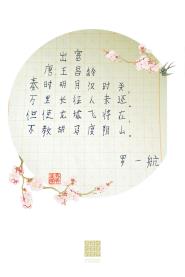 出塞
唐 王昌龄
秦时明月汉时关
万里长征人未还
但使龙城飞将在
不教胡马度阴山
罗一航